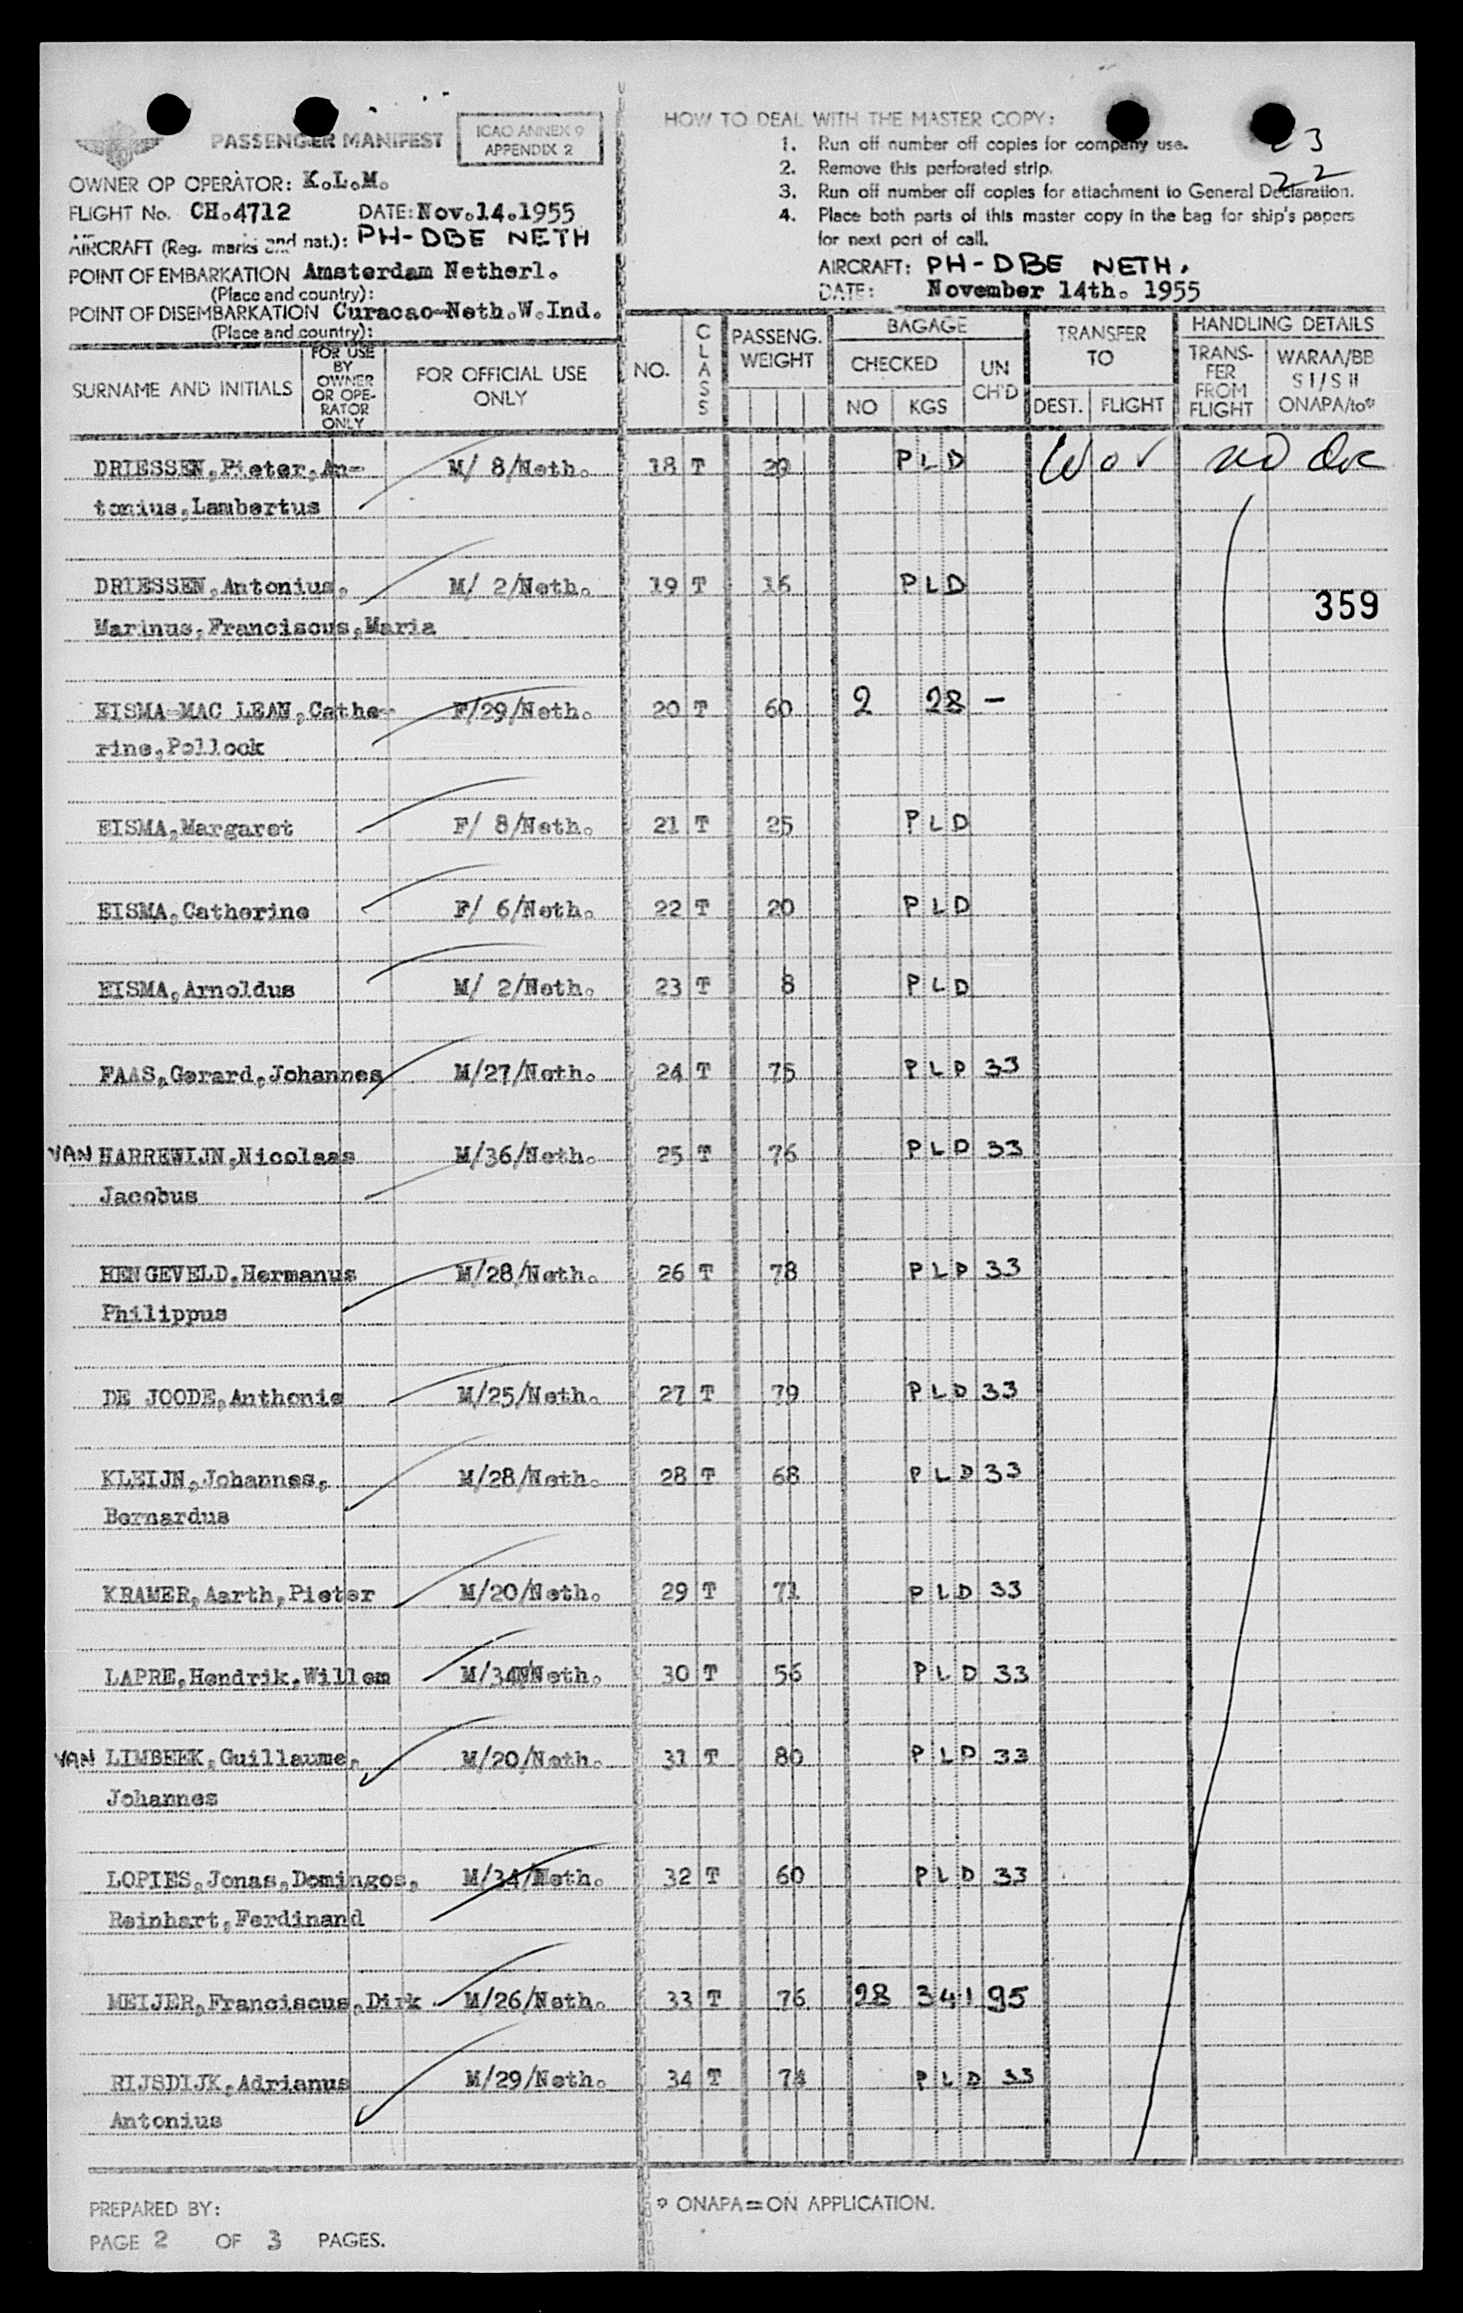 PASSENGER MANIFEST
ICAO ANNEX 9
APPENDIX 2
OWNER OP OPERATOR: K.L.M.
FLIGHT No. CH.4712 DATE: Nov.14.1955
AIRCRAFT (Reg. marks and nat.): PH-DBE NETH
POINT OF EMBARKATION Amsterdam Netherl.
(Place and country):
POINT OF DISEMBARKATION Curacao-Neth.W.Ind.
(Place and country):
HOW TO DEAL WITH THE MASTER COPY:
1. Run off number off copies for company use.
2. Remove this perforated strip.
3. Run off number off copies for attachment to General Declaration.
4. Place both parts of this master copy in the bag for ship's papers
for next port of call.
23
22
AIRCRAFT: PH-DBE NETH.
DATE: November 14th. 1955
SURNAME AND INITIALS
FOR USE
BY
OWNER
OR OPE-
RATOR
ONLY
FOR OFFICIAL USE
ONLY
NO.
CLASS
PASSENG.
WEIGHT
BAGAGE
CHECKED
NO KGS
UN
CH'D
TRANSFER
TO
DEST. FLIGHT
HANDLING DETAILS
TRANS-
FER
FROM
FLIGHT
WARAA/BB
S I/S II
ONAPA/to*
DRIESSEN,Pieter,An- M/ 8/Neth. 18 T 20 PLD
tonius,Lambertus
DRIESSEN,Antonius, M/ 2/Neth. 19 T 16 PLD
359
Marinus,Franciscus,Maria
EISMA-MAC LEAN,Cathe- F/29/Neth. 20 T 60 2 28 -
rine,Pollock
EISMA,Margaret F/ 8/Neth. 21 T 25 PLD
EISMA,Catherine F/ 6/Neth. 22 T 20 PLD
EISMA,Arnoldus M/ 2/Neth. 23 T 8 PLD
FAAS,Gerard,Johannes M/27/Neth. 24 T 75 PLD 33
VAN HARREWIJN,Nicolaas M/36/Neth. 25 T 76 PLD 33
Jacobus
HENGEVELD,Hermanus M/28/Neth. 26 T 78 PLD 33
Philippus
DE JOODE,Anthonie M/25/Neth. 27 T 79 PLD 33
KLEIJN,Johannes, M/28/Neth. 28 T 68 PLD 33
Bernardus
KRAMER,Aarth,Pieter M/20/Neth. 29 T 71 PLD 33
LAPRE,Hendrik,Willem M/34/Neth. 30 T 56 PLD 33
VAN LIMBEEK,Guillaume, M/20/Neth. 31 T 80 PLD 33
Johannes
LOPIES,Jonas,Domingos, M/34/Neth. 32 T 60 PLD 33
Reinhart,Ferdinand
MEIJER,Franciscus,Dirk M/26/Neth. 33 T 76 28 341 95
RIJSDIJK,Adrianus M/29/Neth. 34 T 74 PLD 33
Antonius
PREPARED BY:
PAGE 2 OF 3 PAGES.
* ONAPA=ON APPLICATION.